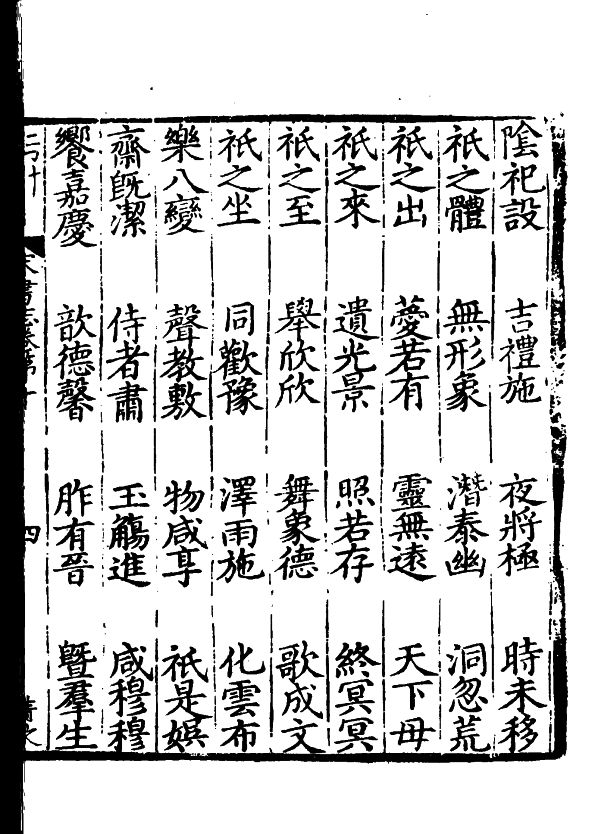 陰祀設 吉禮施 夜將極 時未移
祇之體 無形象 潛泰幽 洞忽荒
祇之出 薆若有 靈無遠 天下母
祇之來 遺光景 照若存 終冥冥
祇之至 舉欣欣 舞象德 歌成文
祇之坐 同歡豫 澤雨施 化雲布
樂八變 聲教敷 物咸亨 祇是娛
齋旣潔 侍者肅 玉觴進 咸穆穆
饗嘉慶 歆德馨 胙有晉 曁羣生
四